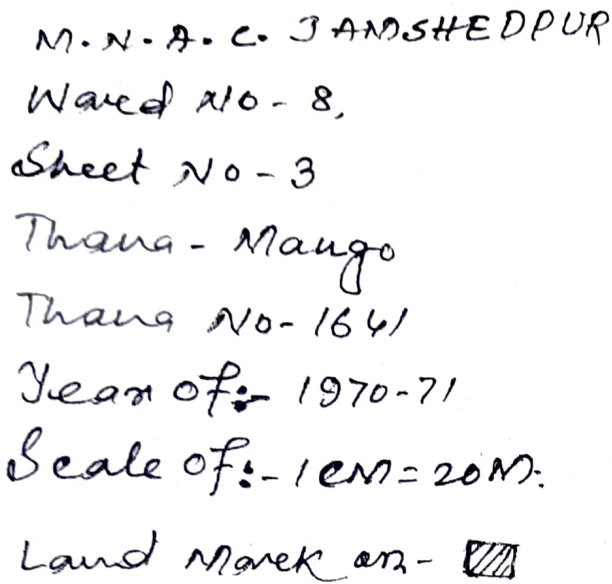 M.N.A.C. JAMSHEDPUR
Ward No - 8,
Sheet No - 3
Thana - Mango
Thana No - 1641
Year of:- 1970-71
Scale of:- 1 CM = 20 M:
Land Mark on -